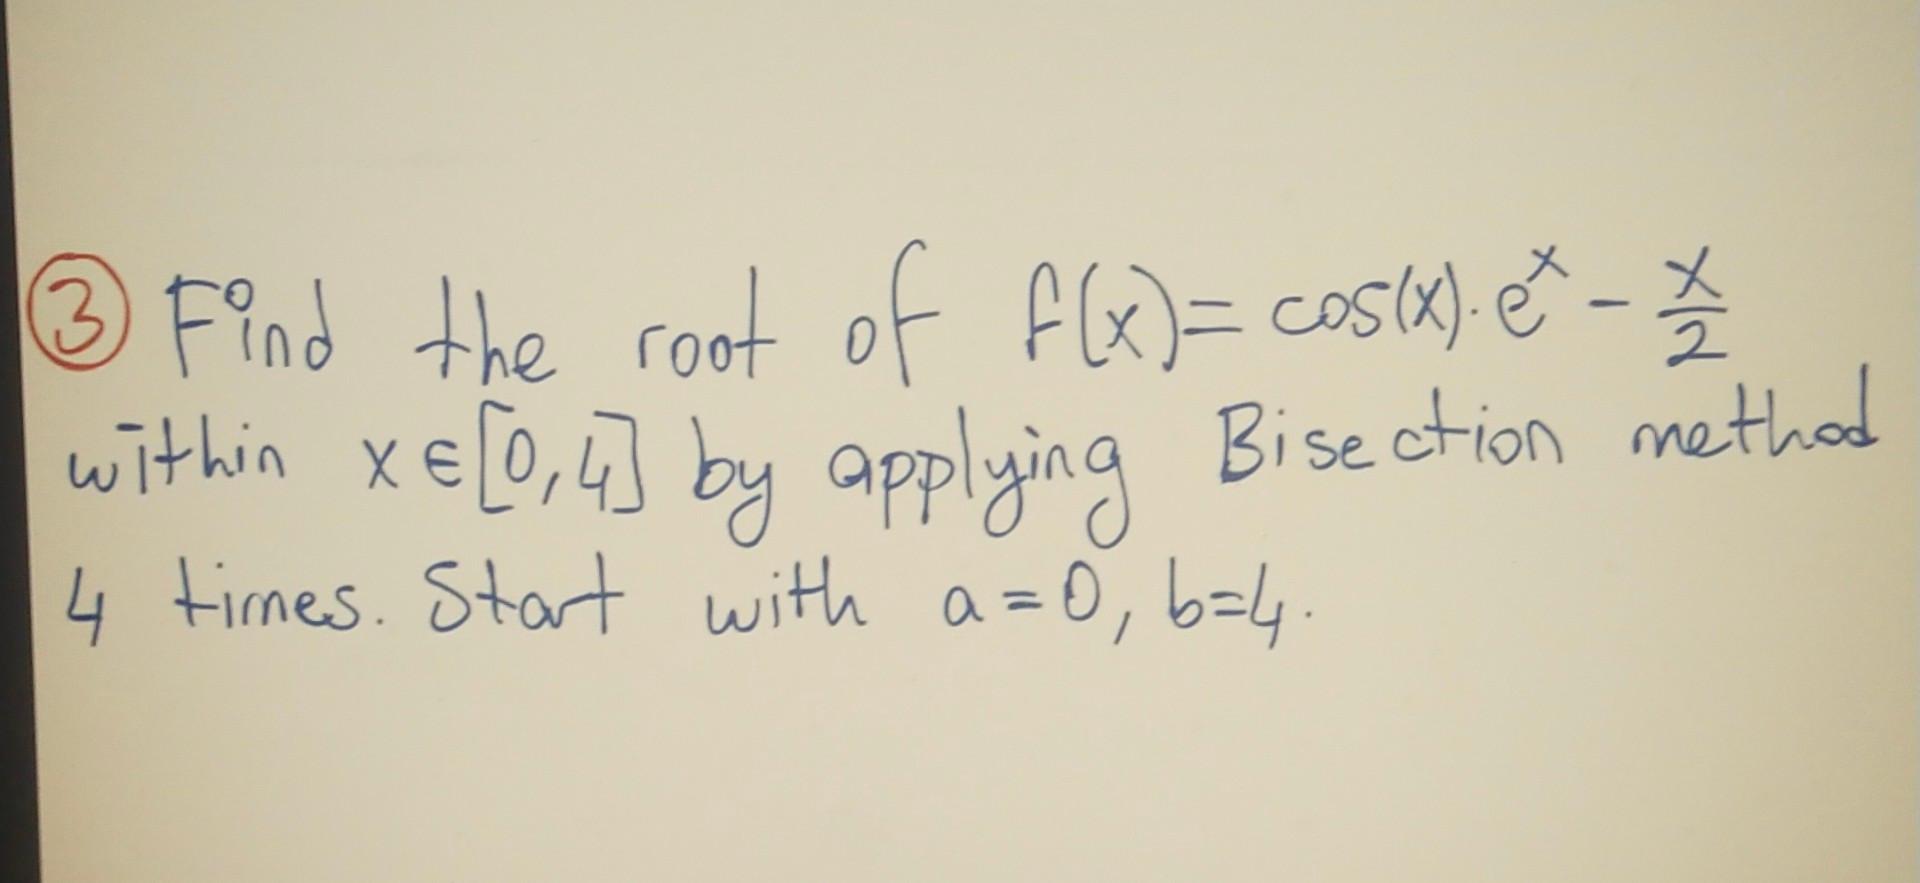 ③ Find the root of f(x)= cos(x). eˣ - x/2
within x∈[0,4] by applying Bisection method
4 times. Start with a=0, b=4.